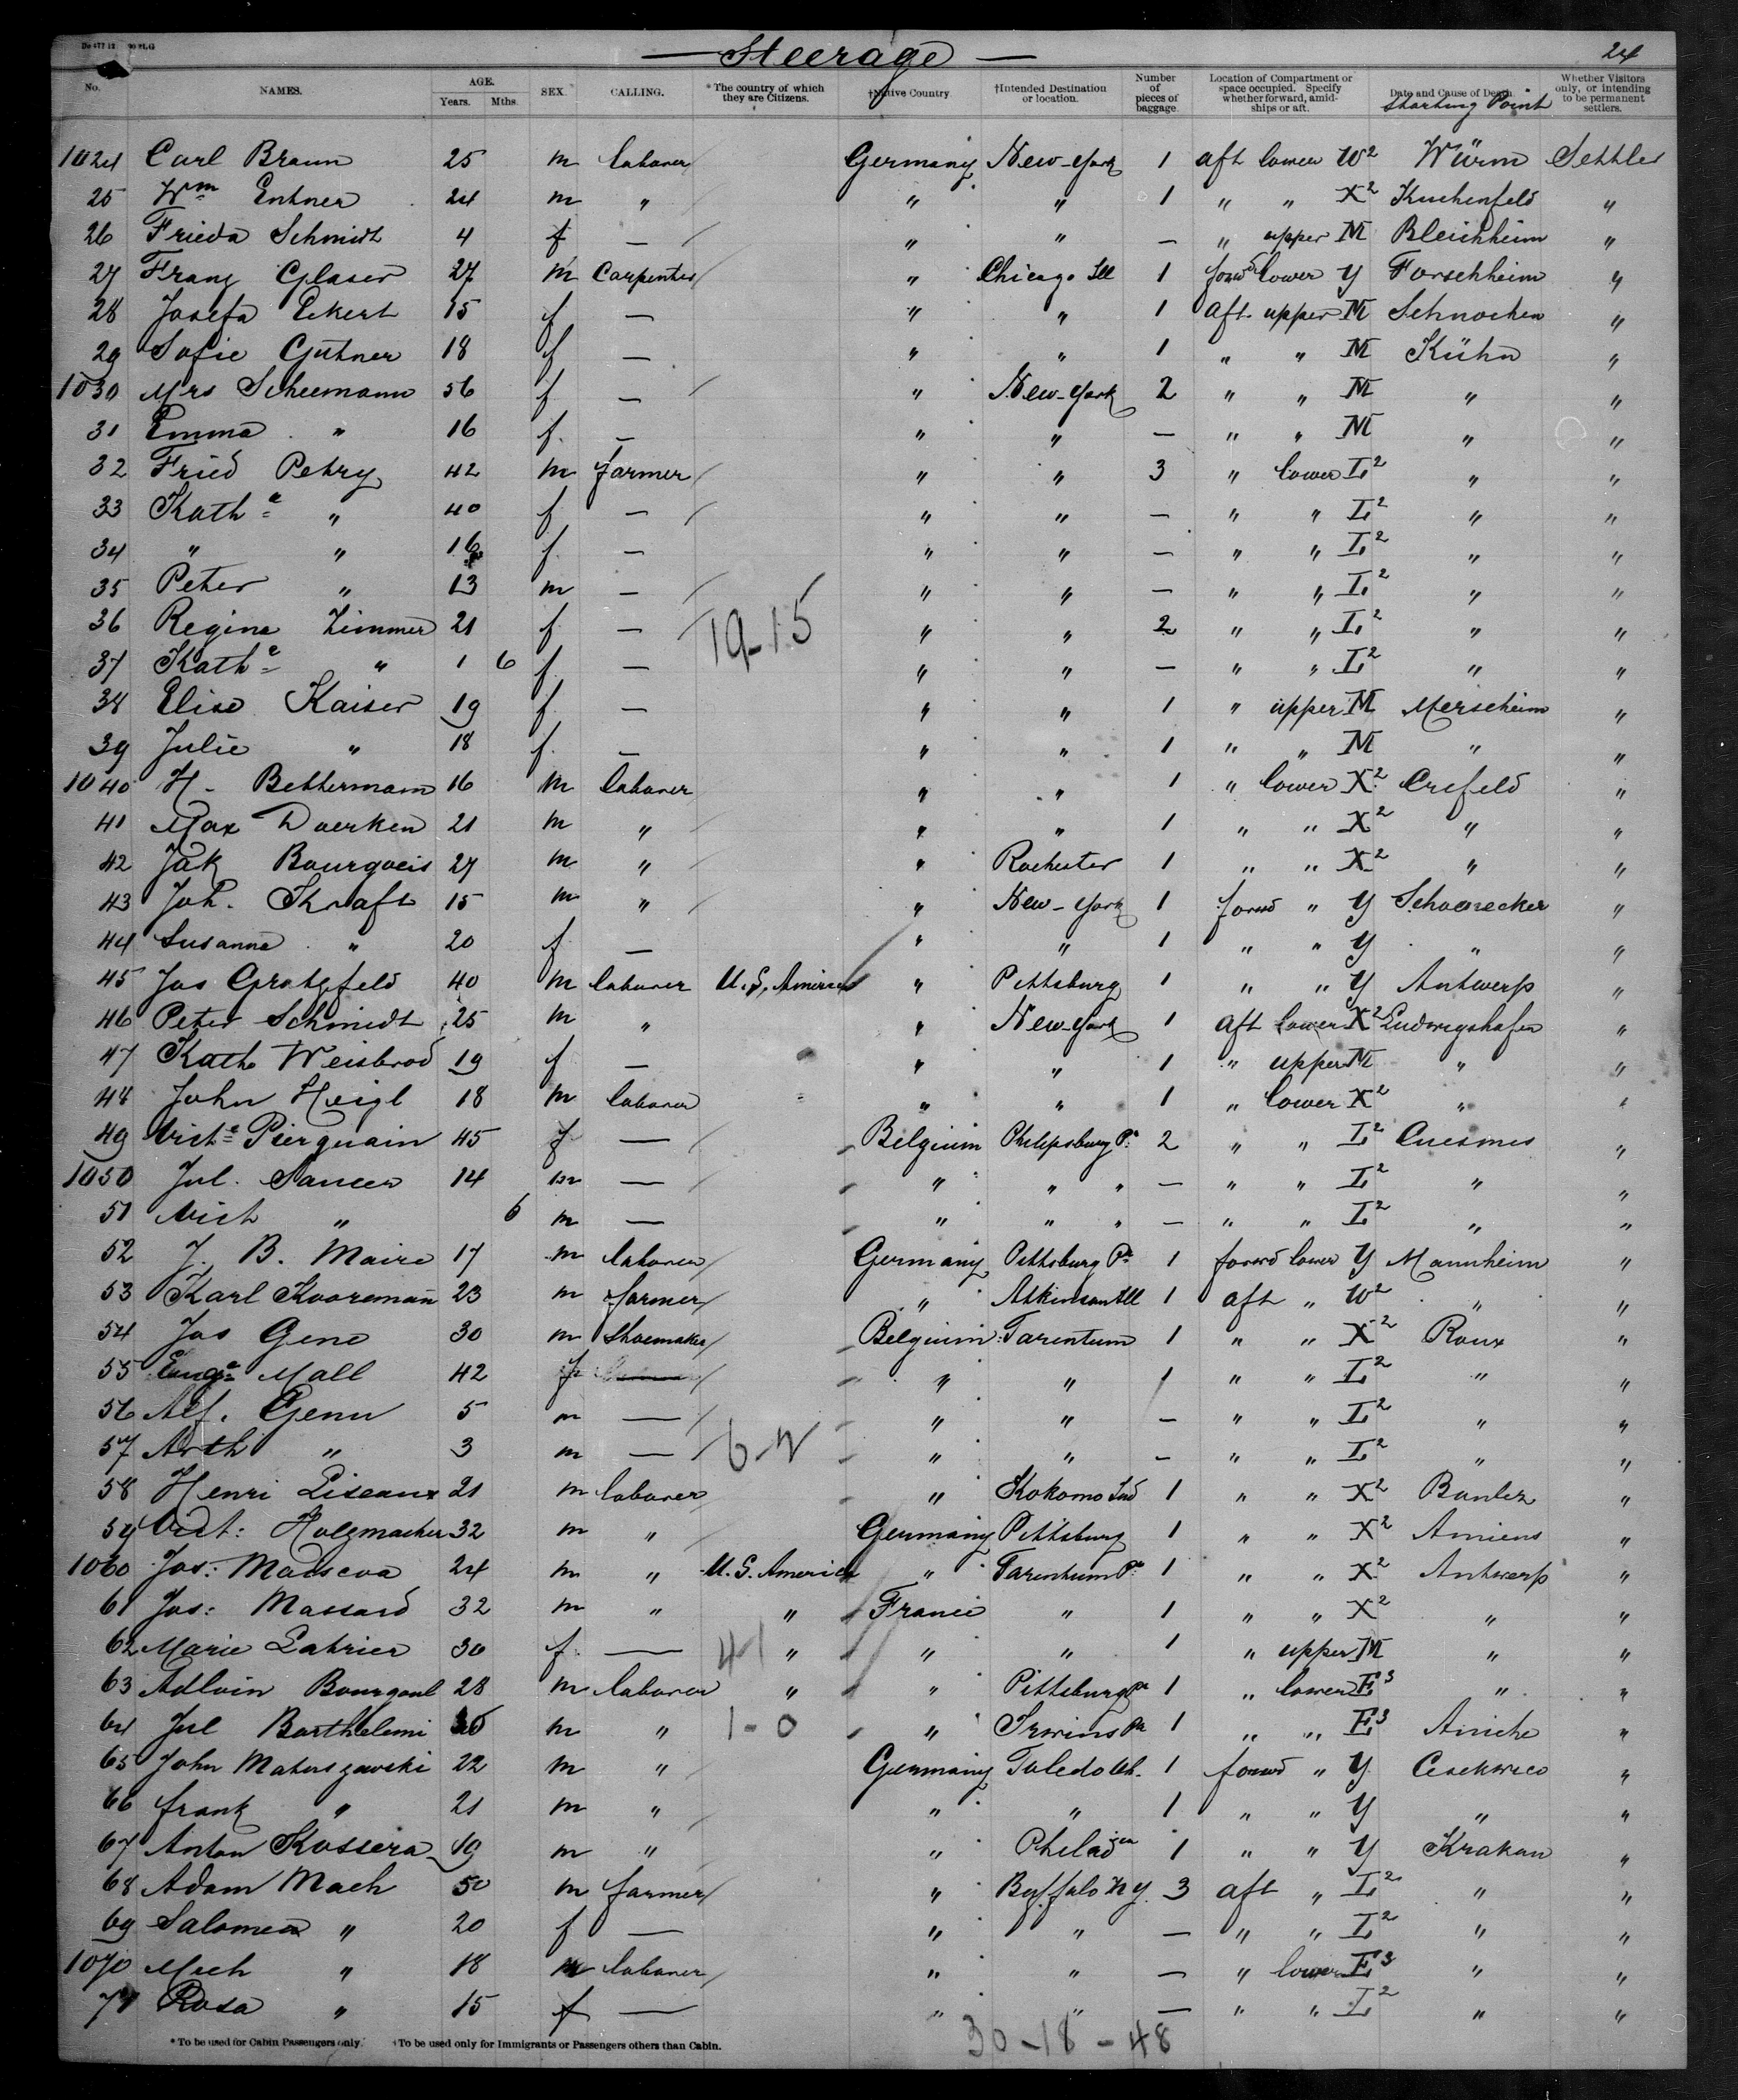 Steerage 24
No. NAMES. AGE. Years. Mths. SEX. CALLING. *The country of which they are Citizens. †Native Country. †Intended Destination or location. Number of pieces of baggage. Location of Compartment or space occupied. Specify whether forward, amid-ships or aft. Date and Cause of Death. Starting Point Whether Visitors only, or intending to be permanent settlers.
1024 Carl Braun 25 m laborer Germany New-York 1 aft lower W2 Würm Settler
25 Wm Entner 24 m " " " 1 " " X2 Kuchenfeld "
26 Frieda Schmidt 4 f — " " — " upper M Bleichheim "
27 Franz Glaser 27 m Carpenter " Chicago Ill 1 forwd lower Y Forschheim "
28 Josefa Eckert 15 f — " " 1 aft upper M Schnochen "
29 Sofie Gütner 18 f — " " 1 " " M Kühn "
1030 Mrs Scheemann 56 f — " New-York 2 " " M " "
31 Emma " 16 f — " " — " " M " "
32 Fried Petry 42 m farmer " " 3 " lower L2 " "
33 Kathe " 40 f — " " — " " L2 " "
34 " " 16 f — " " — " " L2 " "
35 Peter " 13 m — " " — " " L2 " "
36 Regina Zimmer 21 f — 19-15 " " 2 " " L2 " "
37 Kathe " 1 6 f — " " — " " L2 " "
38 Elise Kaiser 19 f — " " 1 " upper M Merscheim "
39 Julie " 18 f — " " 1 " " M " "
1040 H- Bettermann 16 m laborer " " 1 " lower X2 Crefeld "
41 Max Doerken 21 m " " " 1 " " X2 " "
42 Jak Bourgoeis 27 m " " Rochester 1 " " X2 " "
43 Joh. Kraft 15 m " " New-York 1 forwd " Y Schoenecker "
44 Susanna " 20 f — " " 1 " " Y " "
45 Jos Gratzfeld 40 m laborer U.S. America " Pittsburg 1 " " Y Antwerp "
46 Peter Schmidt 25 m " " New-York 1 aft lower X2 Ludwigshafen "
47 Kath Weisbrod 19 f — " " 1 " upper M " "
48 John Heigl 18 m laborer " " 1 " lower X2 " "
49 Victe Pierquain 45 f — Belgium Philipsburg Pa 2 " " L2 Cuesmes "
1050 Jul. Saucer 14 m — " " " — " " L2 " "
51 Vict " 6 m — " " " — " " L2 " "
52 J. B. Maire 17 m laborer Germany Pittsburg Pa 1 forwd lower Y Mannheim "
53 Karl Kooreman 23 m farmer " Atkinson Ill 1 aft " W2 " "
54 Jos Geno 30 m Shoemaker Belgium Tarentum 1 " " X2 Roux "
55 Enge Mall 42 f " " 1 " " L2 " "
56 Alf. Genu 5 m — " " — " " L2 " "
57 Arth " 3 m — 6-2 " " — " " L2 " "
58 Henri Liseaux 21 m laborer " Kokomo Ind 1 " " X2 "
59 Vict: Holzmacher 32 m " Germany Pittsburg 1 " " X2 Amiens "
1060 Jos: 24 m " U.S. America " Tarentum Pa 1 " " X2 Antwerp "
61 Jos: Massard 32 m " " France " 1 " " X2 " "
62 Marie Lahrier 30 f — 4-1 " " " 1 " upper M " "
63 Adlvin Bourgoul 28 m laborer " " Pittsburg Pa 1 " lower E3 " "
64 Jul Barthelemi m " 1-0 " Irwins Pa 1 " " E3 Aniche "
65 John Matuszawski 22 m " Germany Toledo Oh. 1 forwd " Y "
66 frank " 21 m " " " 1 " " Y " "
67 Anton Kossera 19 m " " Philad 1 " " Y Krakau "
68 Adam Mach 50 m farmer " Buffalo NY. 3 aft " L2 " "
69 Salomea " 20 f — " " — " " L2 " "
1070 Mich " 18 m laborer " " — " lower E3 " "
71 Rosa " 15 f — " " — " " L2 " "
30-18-48
*To be used for Cabin Passengers only. †To be used only for Immigrants or Passengers others than Cabin.